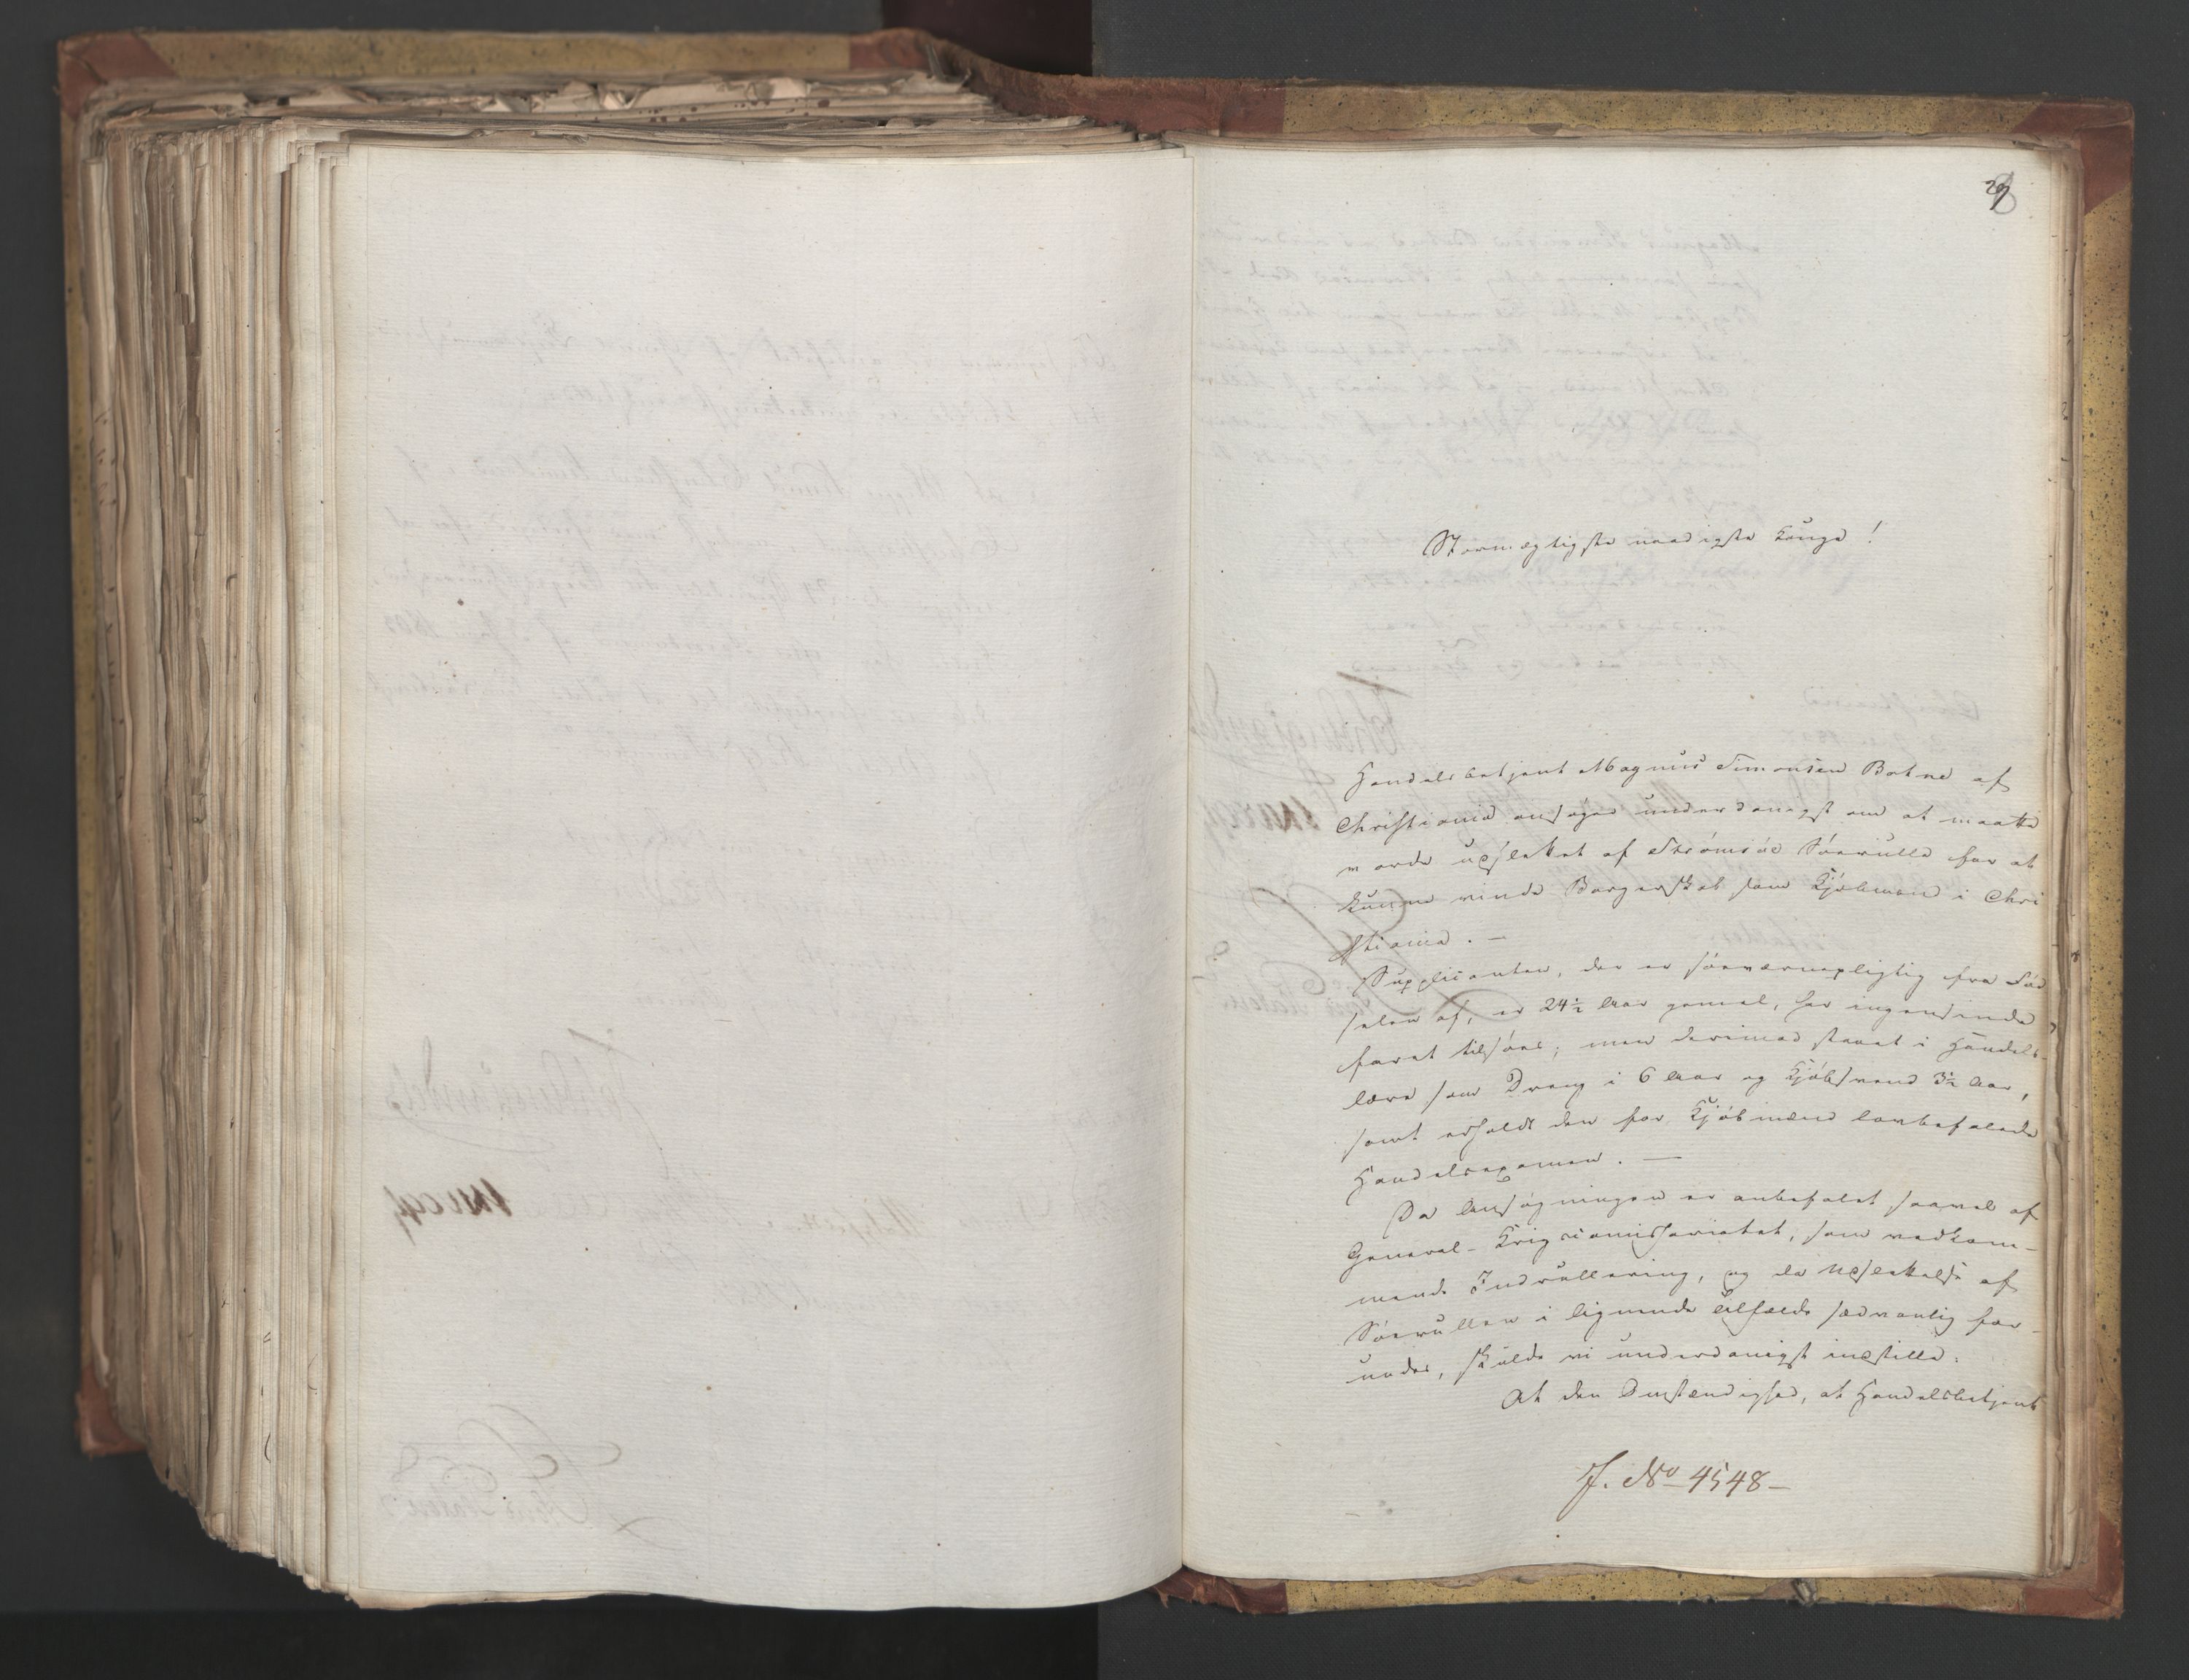 29
Stormægtigste naadigste Konge!
Handelsbetjent Magnus Simonsen Botne af
Christiania ansøger underdanigst om at maatte
vorde udslettet af Strömsöe Söerulle for at
kunne vinde Borgerskab som Kjøbmand i Chri
stiania. —
Supplicanten, der er söeværnepligtig fra Föd
selen af, er 24½ Aar gammel, har ingensinde
faret tilsöes; men derimod staaet i Handels-
lære som Dreng i 6 Aar og Kjöbsvend 3½ Aar,
samt erholdt den for Kjöbmænd lovbefalede
Handelsexamen. —
Da Ansögningen er anbefalet saavel af
General-Krigscommissariatet, som vedkom-
mende Indrullering, og da Udslettelse af
Söerullen i lignende Tilfælde sædvanlig for-
undes, skulde vi underdanigst indstille:
At den Omstændighed, at Handelsbetjent
J. No 4548—